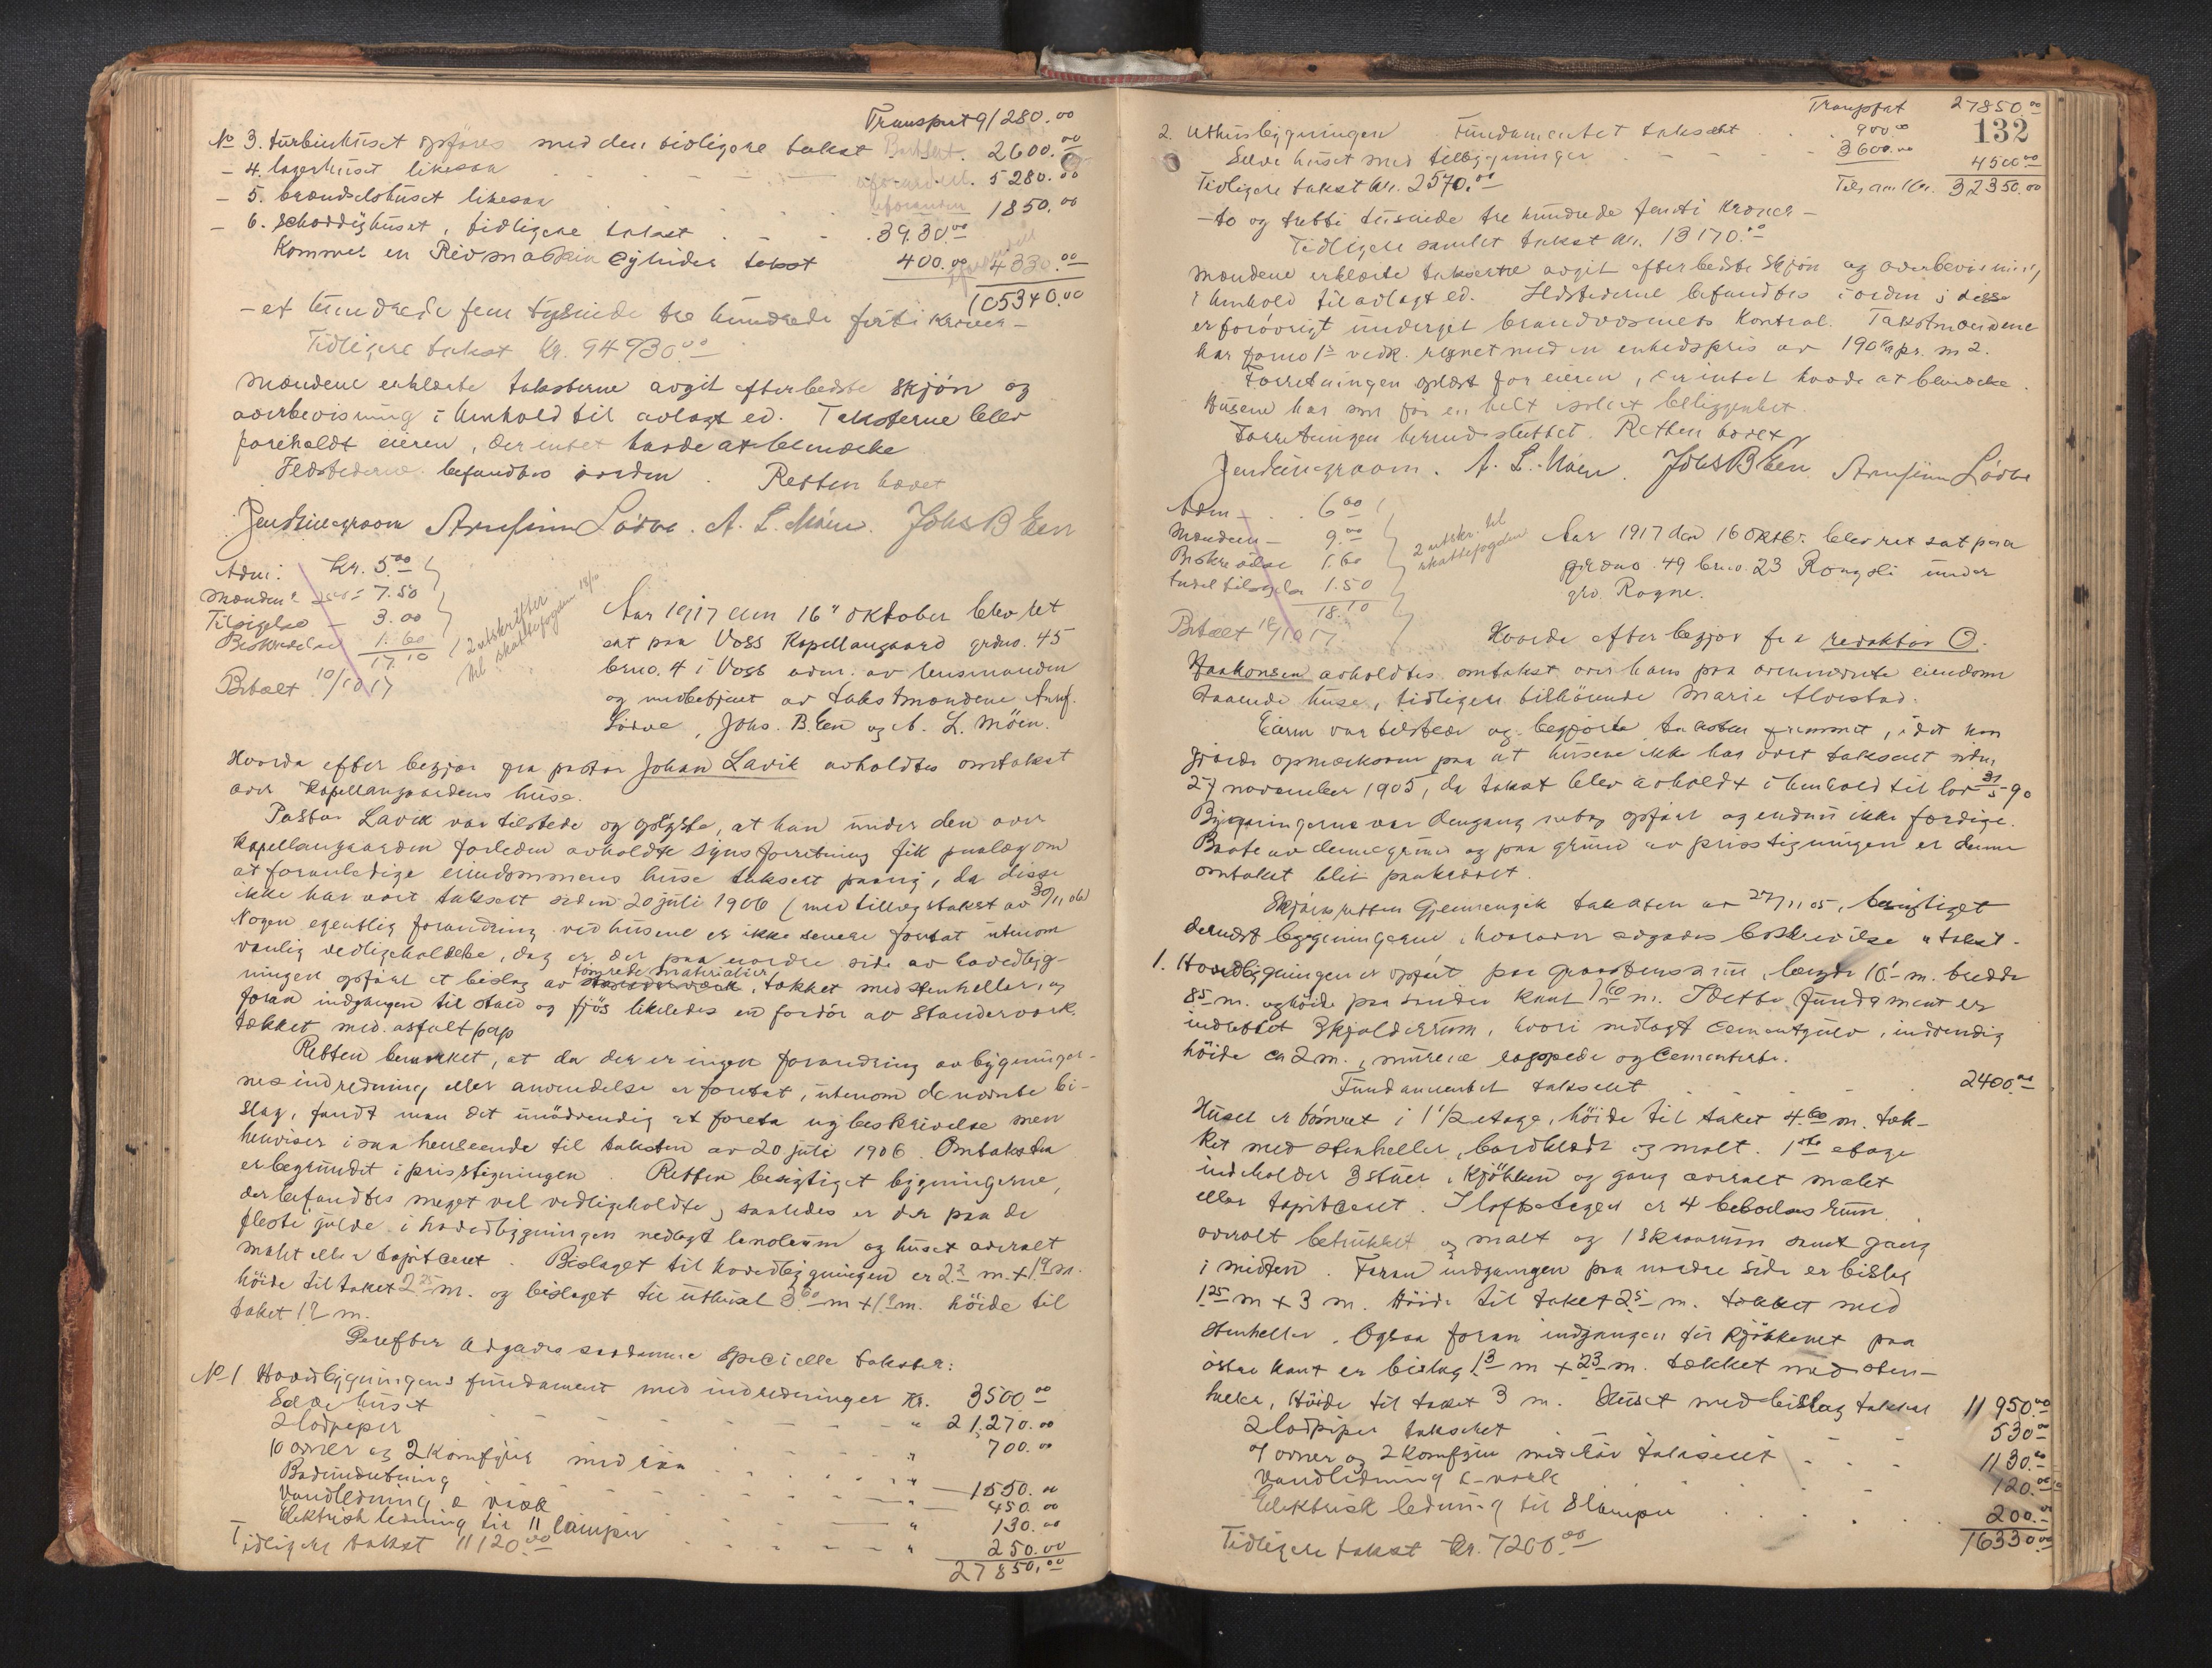 Transport 91280.00
No 3. turbinhuset opføres med den tidligere takst 2600.00
- 4. lagerhuset likesaa 5280.00
- 5. brændselshuset likesaa 1850.00
- 6. schoddyhuset, tidligere takst 3930.00
Kommer en Rivmaskin Cylinder takst 400.00 4330.00
105340.00
- et hundrede fem tusinde tre hundrede førti kroner -
Tidligere takst Kr. 94930.00
Mændene erklærte taksterne avgit efter bedste skjøn og
overbevisning i henhold til avlagt ed. Taksterne blev
foreholdt eieren, der intet havde at bemerke
Ildstederne befandtes iorden. Retten hævet
Arnfinn Lödve. A. L. Möen. Johs B Een
Adm: Kr. 5.00
Mændene 7.50
Tilsigelse - 3.00
Beskrivelse 1.60
17.10
2 utskrifter til skattefogden 18/10
Betalt 10/10 17
Aar 1917 den 16 oktober blev ret
sat paa Voss Kapellangaard grdno. 45
brno. 4 i Voss adm. av lensmanden
og medbetjent av takstmændene Arnf.
Lödve, Johs. B. Een og A. L. Möen.
Hvorda efter begjær fra pastor Johan Lavik avholdtes omtakst
over Kapellangaardens huse.
Pastor Lavik var tilstede og oplyste, at han under den over
Kapellangaarden forleden avholdte synsforretning fik paalæg om
at foranledige eiendommens huse taksert paany, da disse
ikke har vært taksert siden 20 juli 1906 (med tillægstakst av 30/11 06)
Nogen egentlig forandring ved husene er ikke senere foretat utenom
vanlig vedligeholdelse, dog er der paa nordre side av hovedbyg-
ningen opført et bislag av tømrede materialier, tækket med stenheller, og
foran indgangen til stald og fjös likeledes en fordör av standerværk
tækket med asfaltpap
Retten bemerket, at da der er ingen forandring av bygninger-
nes indredning eller anvendelse er foretat, utenom de nævnte bi-
slag, fandt man det unödvendig at foreta ny beskrivelse men
henviser i saa henseende til taksten av 20 juli 1906. Omtaksten
er begrundet i prisstigningen. Retten besigtiget bygningerne,
der befandtes meget vel vedligeholdte, saaledes er der paa de
fleste gulve i hovedbygningen nedlagt linoleum og huset overalt
malt eller tapitceret. Bislaget til hovedbygningen er 2.2 m. x 1.9 m.
höide til taket 2.25 m. og bislaget til uthuset 3.60 m x 1.9 m. höide til
taket 1.2 m.
Derefter avgaves saadanne specielle takster:
No 1 Hovedbygningens fundament med indredninger Kr. 3500.00
Selve huset " 21,270.00
2 lodpiper " 700.00
10 ovner og 2 Komfyrer med rør " 1550.00
Badeindretning " 450.00
Vandledning & vask " 130.00
Elektrisk ledning til 11 lamper " 250.00
Tidligere takst 11120.00
27850.00
Transport 27850.00
132
2. Uthusbygningen Fundamentet taksert 900.00
Selve huset med tilbygninger 3600.00 4500.00
Tidligere takst kr. 2570.00 Tilsam. Kr. 32350.00
- to og tretti tusinde tre hundrede femti kroner -
Tidligere samlet takst kr. 13170.00
Mændene erklærte taksterne avgit efter bedste skjön og overbevisning
i henhold til avlagt ed. Ildstederne befandtes iorden; disse
er forøvrigt undergit brandvæsenets kontrol. Takstmændene
har for no 1s vedk. regnet med en enhedspris av 190 Kr pr. m2.
Forretningen oplæst for eieren, der intet havde at bemerke.
Husene har som før en helt isolert beliggenhet.
Forretningen hermed sluttet. Retten hævet
A. L. Möen. Johs B Een Arnfinn Lödve
Adm - 6.00
Mændene - 9.00
Beskrivelse 1.60
Indel tilsigelse 1.50
18.10
2 utskr. til skattefogden
Betalt 16/10 17
Aar 1917 den 16 oktbr. blev ret sat paa
grdno. 49 brno. 23 Rongsli under
grd. Rogne.
Hvorda efter begjær fra redaktör O.
Haakonsen avholdtes omtakst over hans paa ovennævnte eiendom
staaende huse, tidligere tilhörende Marie Alvestad.
Eieren var tilstede og begjærte taksten fremmet, idet han
gjorde opmerksom paa at husene ikke har vært taksert siden
27 november 1905, da takst blev avholdt i henhold til lov 31/5 90
Bygningerne var dengang netop opført og endnu ikke færdige.
Baade av denne grund og paa grund av prisstigningen er denne
omtakst blit paakrævet.
Skjönsretten gjennemgik taksten av 27/11 05, besigtiget
dernæst bygningerne, hvorover avgaves beskrivelse & takst.
1. Hovedbygningen er opført paa graastensmur, længde 10.1 m. bredde
8.5 m. og höide paa söndre kant 1.60 m. I dette fundament er
indrettet 3 kjelderrum, hvori nedlagt cementgulv, indvendig
höide ca 2 m., murene rappede og cementerte.
Fundamentet taksert 2400.00
Huset er tömret i 1 1/2 etage, höide til taket 4.60 m. tæk-
ket med stenheller, bordklædt og malt. 1ste etage
indeholder 3 stuer, kjökken og gang overalt malet
eller tapitceret. I loftsetagen er 4 beboelsesrum
overalt betrukket og malt og 1 skraarum samt gang
i midten. Foran indgangen paa nordre side er bislag
1.25 m x 3 m. Höide til taket 2.5 m. tækket med
stenheller. Ogsaa foran indgangen til kjökkenet paa
östre kant er bislag 1.3 m x 2.3 m. tækket med sten-
heller, Höide til taket 3 m. Huset med bislag taksert 11950.00
2 lodpiper taksert 530.00
7 ovner og 2 komfyrer med rør taksert 1130.00
Vandledning & vask 120.00
Elektrisk ledning til 8 lamper 200.00
Tidligere takst Kr. 7200.00
16330.00